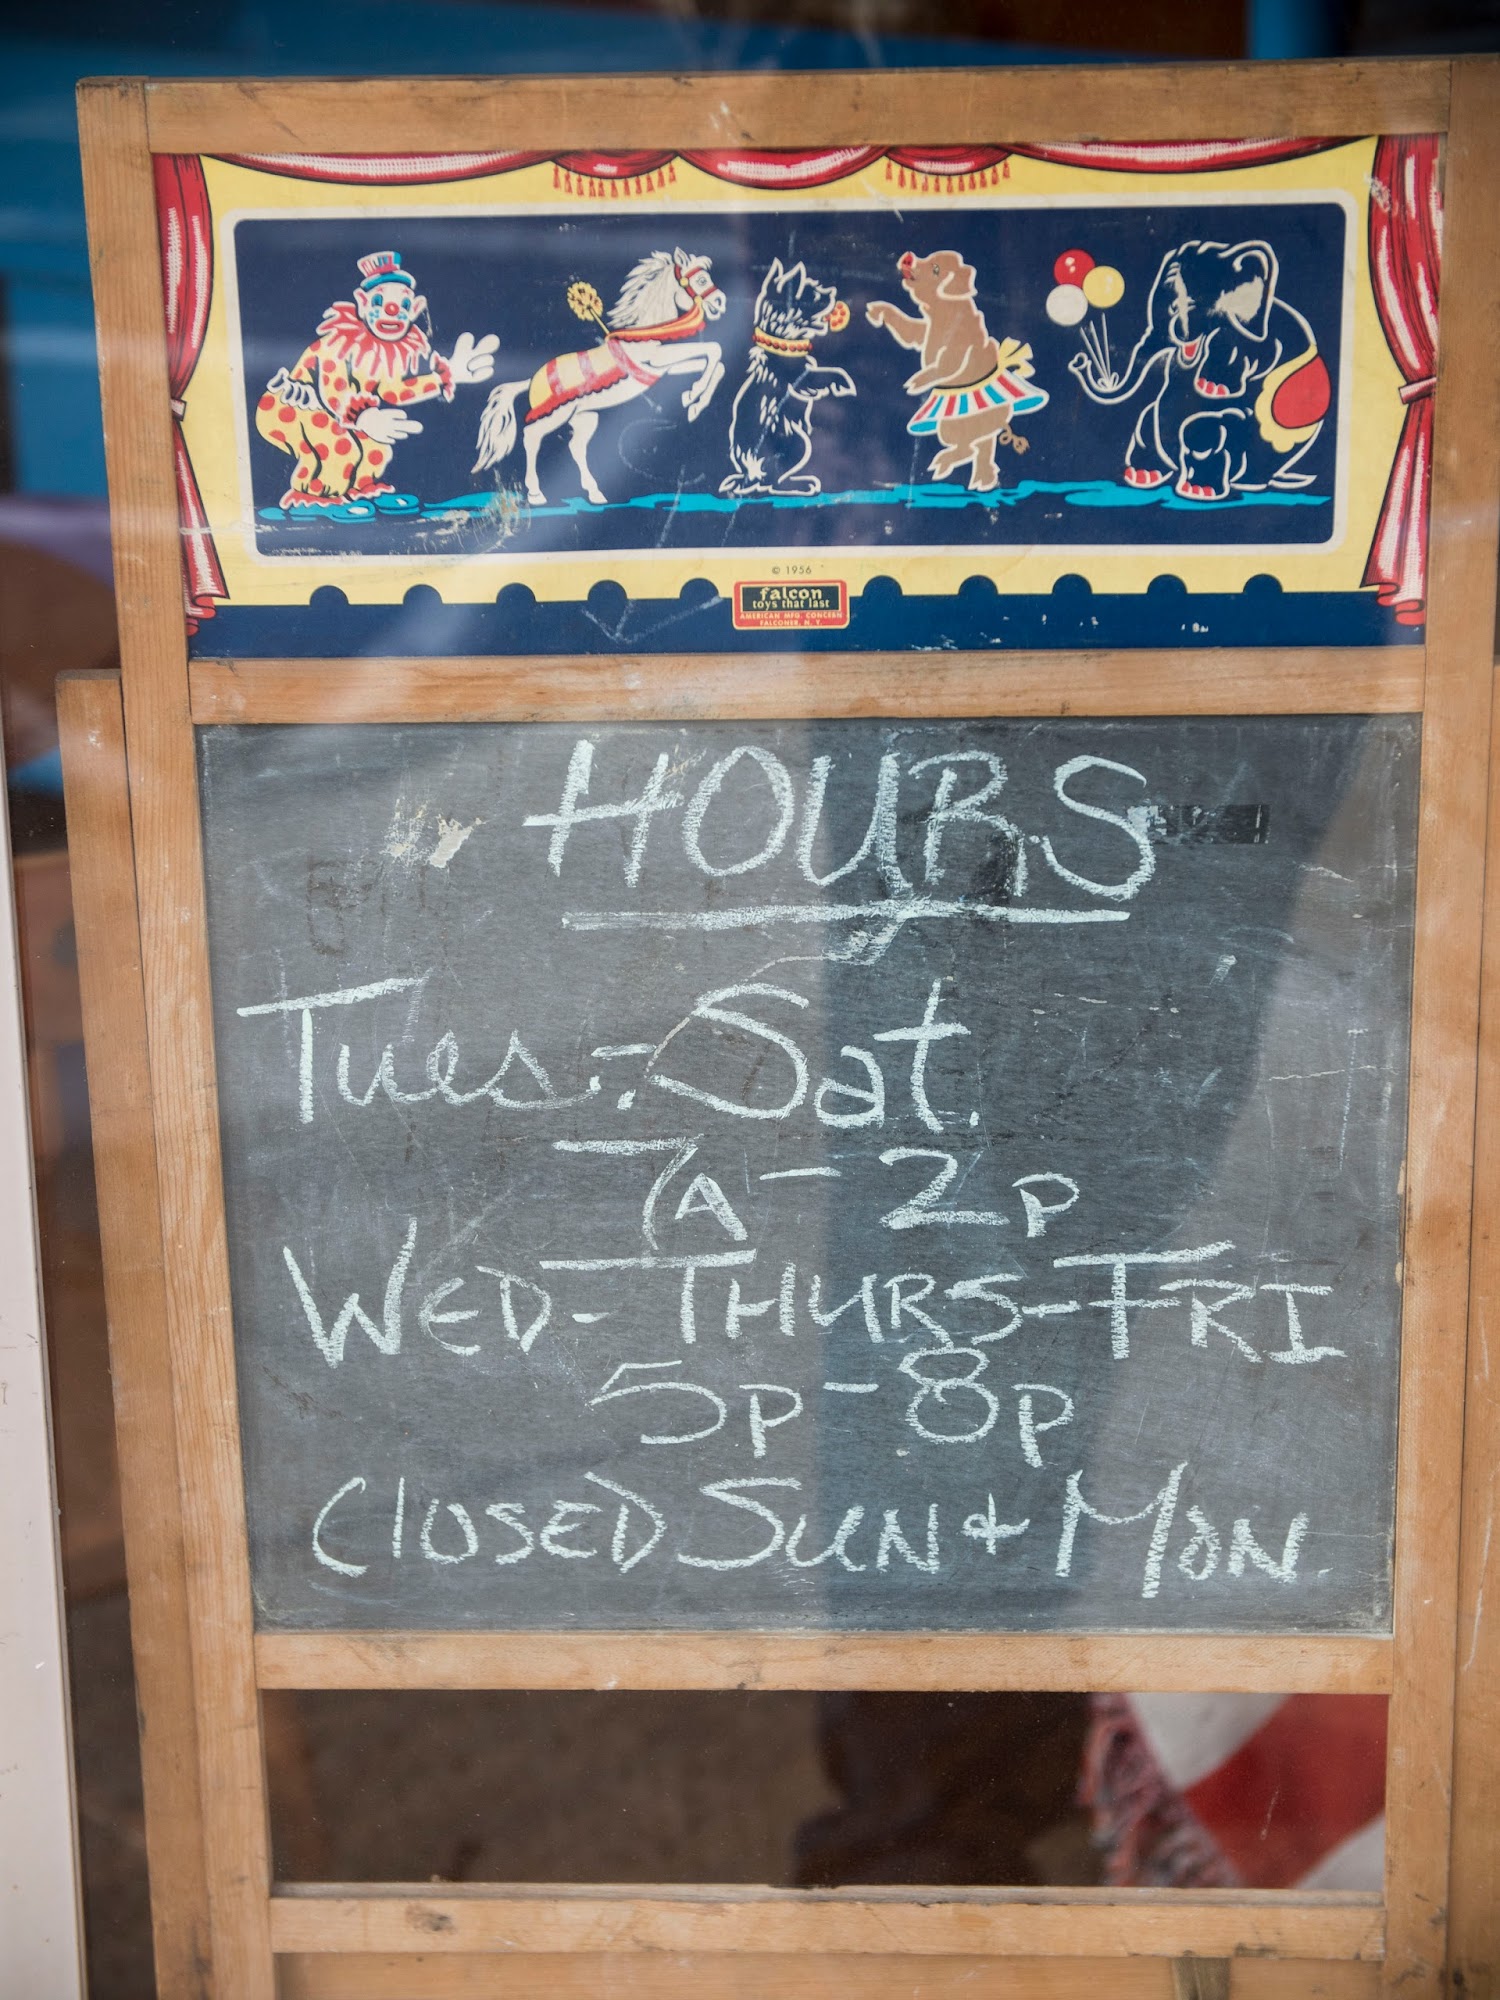 © 1956
falcon
toys that last
AMERICAN MFG. CONCERN
FALCONER, N. Y.
HOURS
Tues.-Sat.
7A-2P
WED-THURS-FRI
5P-8P
CLOSED SUN & MON.